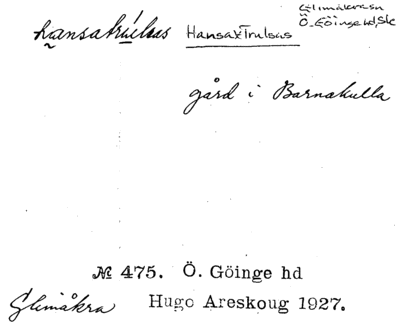 Glimåkra sn
hansatrúlsas Hansax̌Trulsas Ö. Göinge hd, Sk
gård i Barnakulla
№ 475. Ö. Göinge hd
Glimåkra Hugo Areskoug 1927.